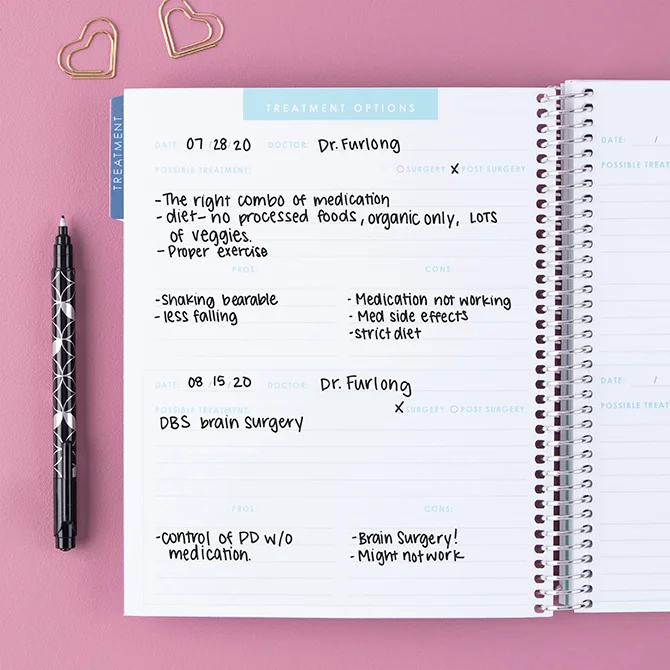 TREATMENT OPTIONS
TREATMENT
DATE: 07 / 28 / 20 DOCTOR: Dr. Furlong
POSSIBLE TREATMENT: SURGERY X POST SURGERY
-The right combo of medication
- diet- no processed foods, organic only, LOTS
of veggies.
- Proper exercise
PROS: CONS:
-Shaking bearable - Medication not working
- less falling - Med side effects
-strict diet
DATE: 08 / 15 / 20 DOCTOR: Dr. Furlong
POSSIBLE TREATMENT: X SURGERY POST SURGERY
DBS brain surgery
PROS: CONS:
-control of PD w/o - Brain Surgery!
medication. - Might not work
DATE: /
POSSIBLE TREAT
DATE: /
POSSIBLE TREAT